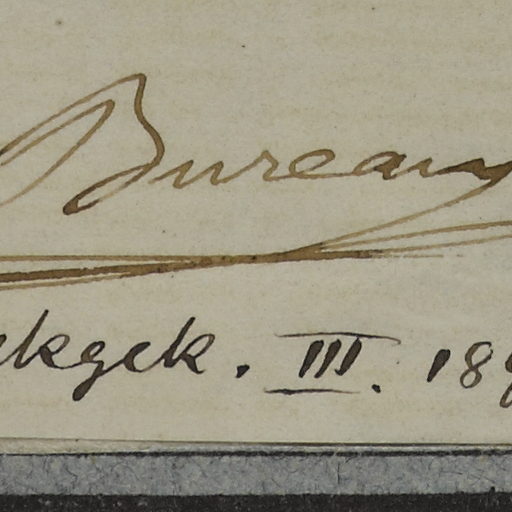 Bureau
ekgek. III. 189